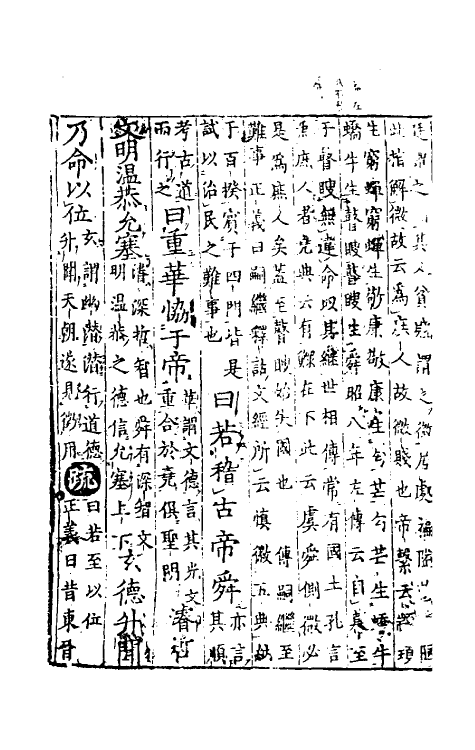 其人貧窮謂之微居處褊隘
此指解微故云為庶人故微賤也帝繫云顓頊
生窮蟬窮蟬生敬康敬康生句芒句芒生蟜牛
蟜牛生瞽瞍瞽瞍生舜昭八年左傳云自幕至
于瞽瞍無違命以其繼世相傳常有國土孔言
為庶人者堯典云有鰥在下此云虞舜側微必
是為庶人矣蓋至瞽瞍始失國也 傳嗣繼至
難事正義曰嗣繼釋詁文經所云慎徽五典納
于百揆賓于四門皆是
試以治民之難事也
曰若稽古帝舜
亦言
其順
考古道
而行之
曰重華協于帝
華謂文德言其光文
重合於堯俱聖明
濬哲
文明溫恭允塞
濬深哲智也舜有深智文
明溫恭之德信允塞上下
玄德升聞
乃命以位
玄謂幽潛潛行道德
升聞天朝遂見徵用
疏
曰若至以位
正義曰昔東晉